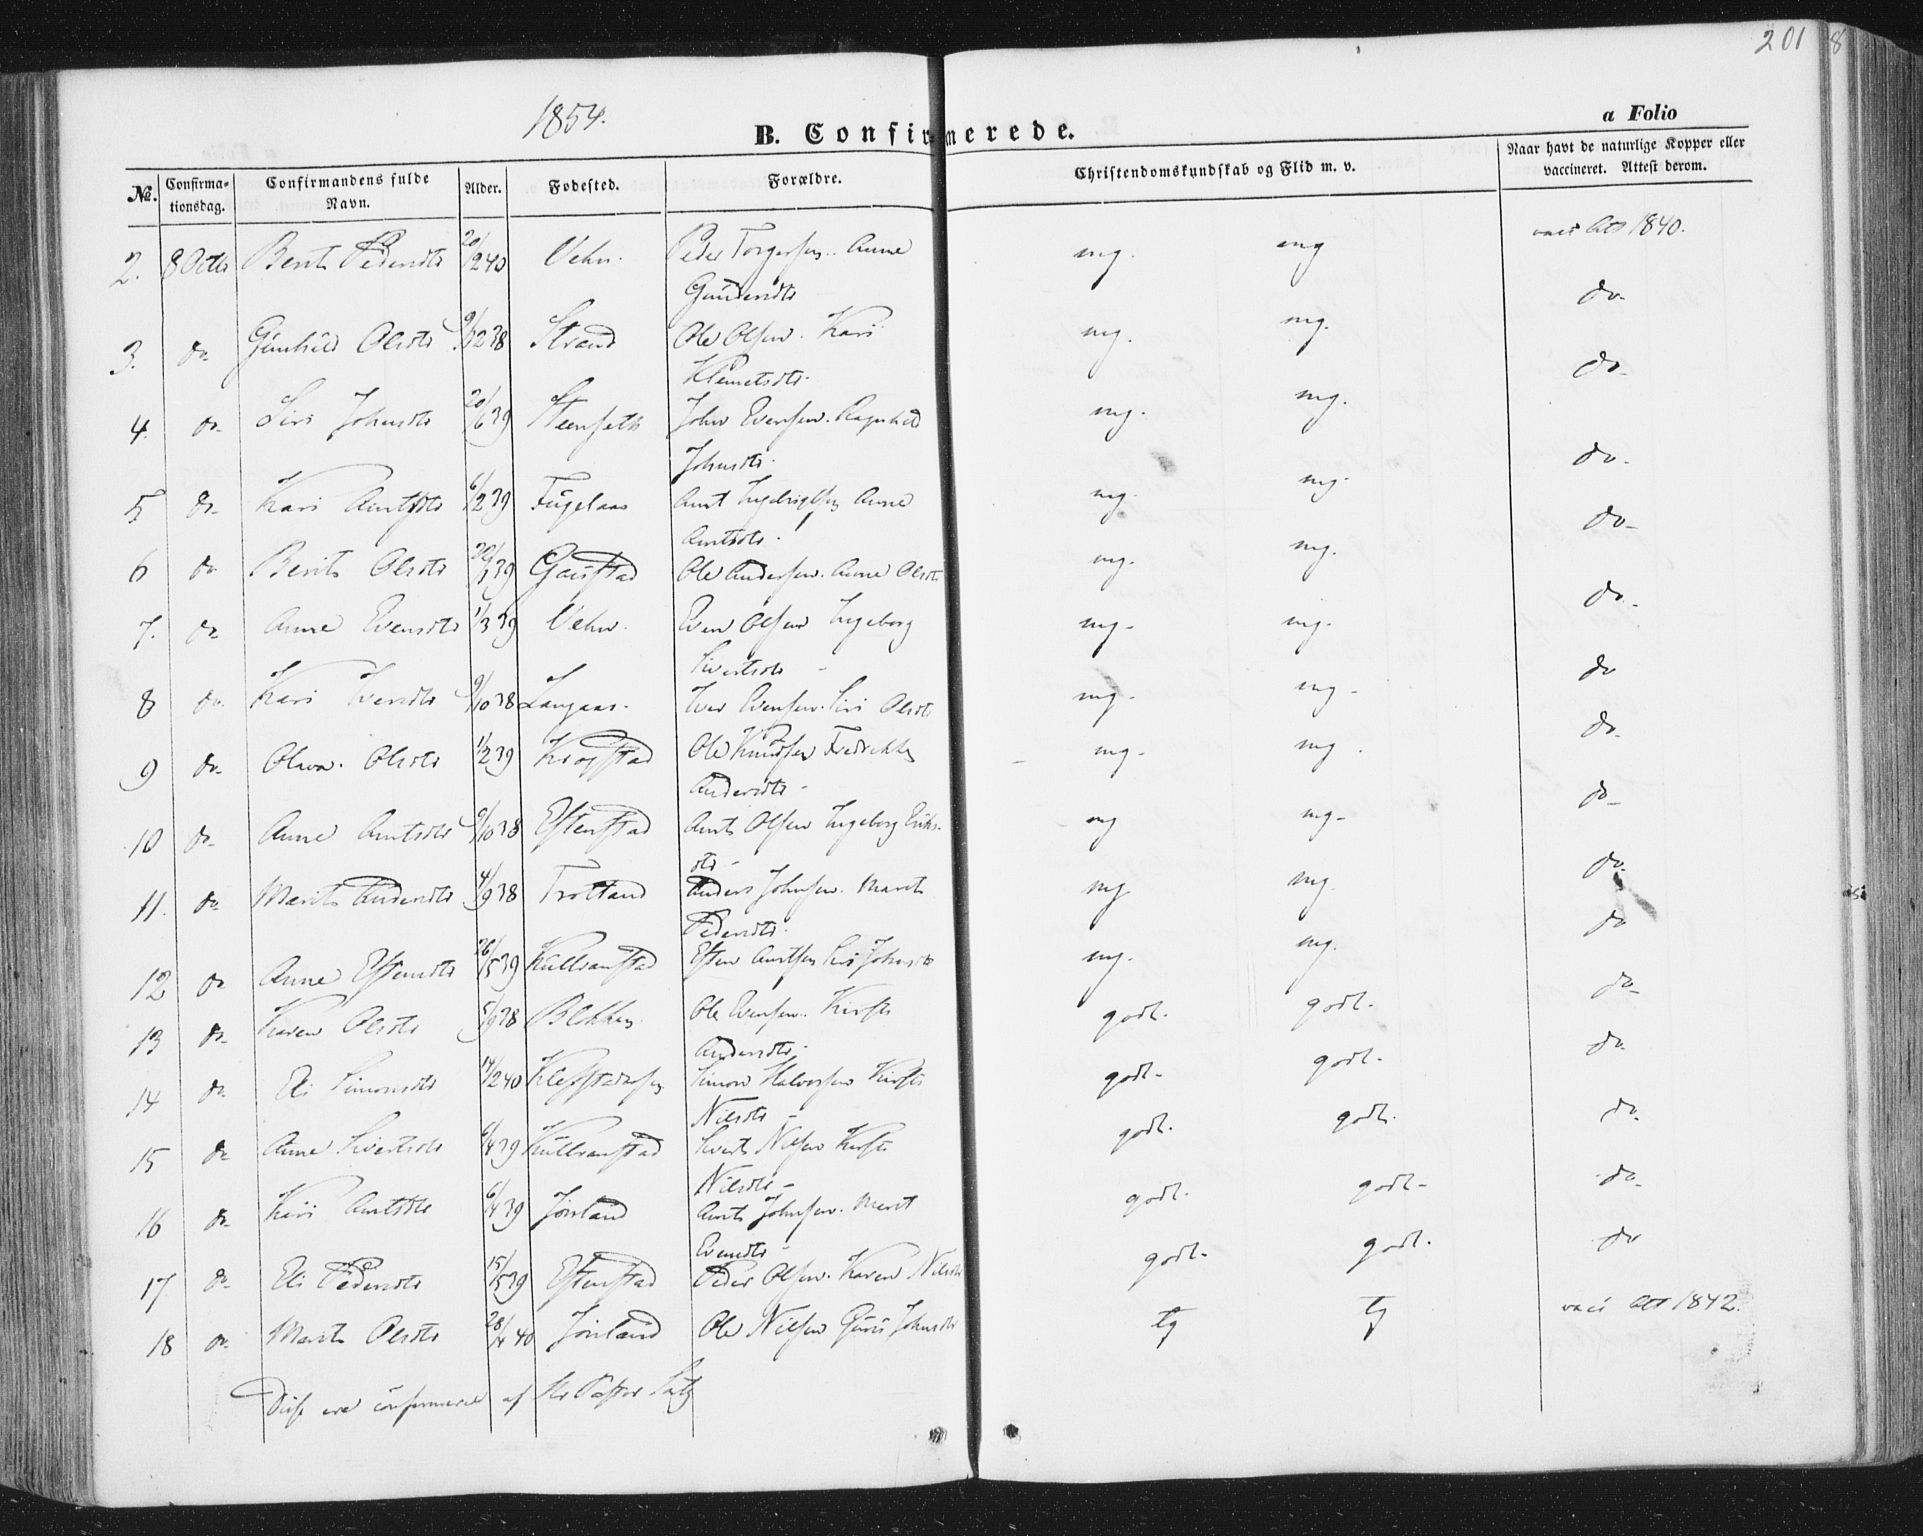 201
8
1854.
B. Confirmerede.
a Folio
No. Confirmationsdag. Confirmandens fulde Navn. Alder. Fødested. Forældre. Christendomskundskab og Flid m. v. Naar havt de naturlige Kopper eller vaccineret. Attest derom.
2. 8 Octb Berit Pedersdtr 20/2 40 Vehn. Peder Torgersen. Anne mg. mg vacc Att 1840.
Gundersdtr
3. do Gunhild Olsdtr 9/12 38 Strand Ole Olsen. Kari mg. mg. do
Klemetsdtr.
4. do Siri Johnsdtr 20/6 39 Steenseth John Evensen. Ragnhild mg. mg. do
Johnsdtr.
5. do Kari Arntsdtr 6/2 39 Fuglaas Arnt Ingebrigtsen Anne mg. mg. do
Arntsdtr.
6 do Berit Olsdtr 39 Gaustad Ole Andersen. Anne Olsdtr mg. mg. do
7. do Anne Evensdtr 1/3 39 Vehn. Even Olsen Ingeborg mg. mg. do
Sivertsdtr
8 do Kari Iversdtr 9/10 38 Langaas. Iver Evensen. Siri Olsdtr mg. mg. do
9 do Olava. Olsdtr 1/2 39 Krogstad Ole Knudsen Fredrikke mg. mg. do
Andersdtr
10 do Anne Arntsdtr 9/10 38 Estenstad Arnt Olsen Ingeborg Eriks- mg mg. do
dtr
11. do Marit Andersdtr 4/9 38 Trotland Anders Johnsen. Marit mg mg. do
Pedersdtr.
12 do Anne Estensdtr 26/5 39 Kulbranstad Esten Arntsen Siri Johnsdtr mg. mg. do
13 do Karen Olsdtr 5/9 38 Bekken Ole Evensen. Kirsti godt. godt. do
Andersdtr
14 do Eli Simonsdtr 14/2 40 Simon Halvorsen Kirsti godt. godt. do
Nilsdtr
15 do Anne Sivertsdtr 6/4 39 Kulbranstad Sivert Nilsen Kirsti godt. godt. do
Nilsdtr
16 do Kari Arntsdtr 6/4 39 Jorland Arnt Johnsen. Marit godt. godt. do
Evensdtr
17 do Eli Pedersdtr 15/5 39 Estenstad Peder Olsen. Karen Nilsdtr godt. godt. do
18 do Marit Olsdtr 28/4 40 Jorland Ole Nilsen Guru Johnsdtr tg tg vacc Att 1842.
Disse ere confirmered af Hr Pastor